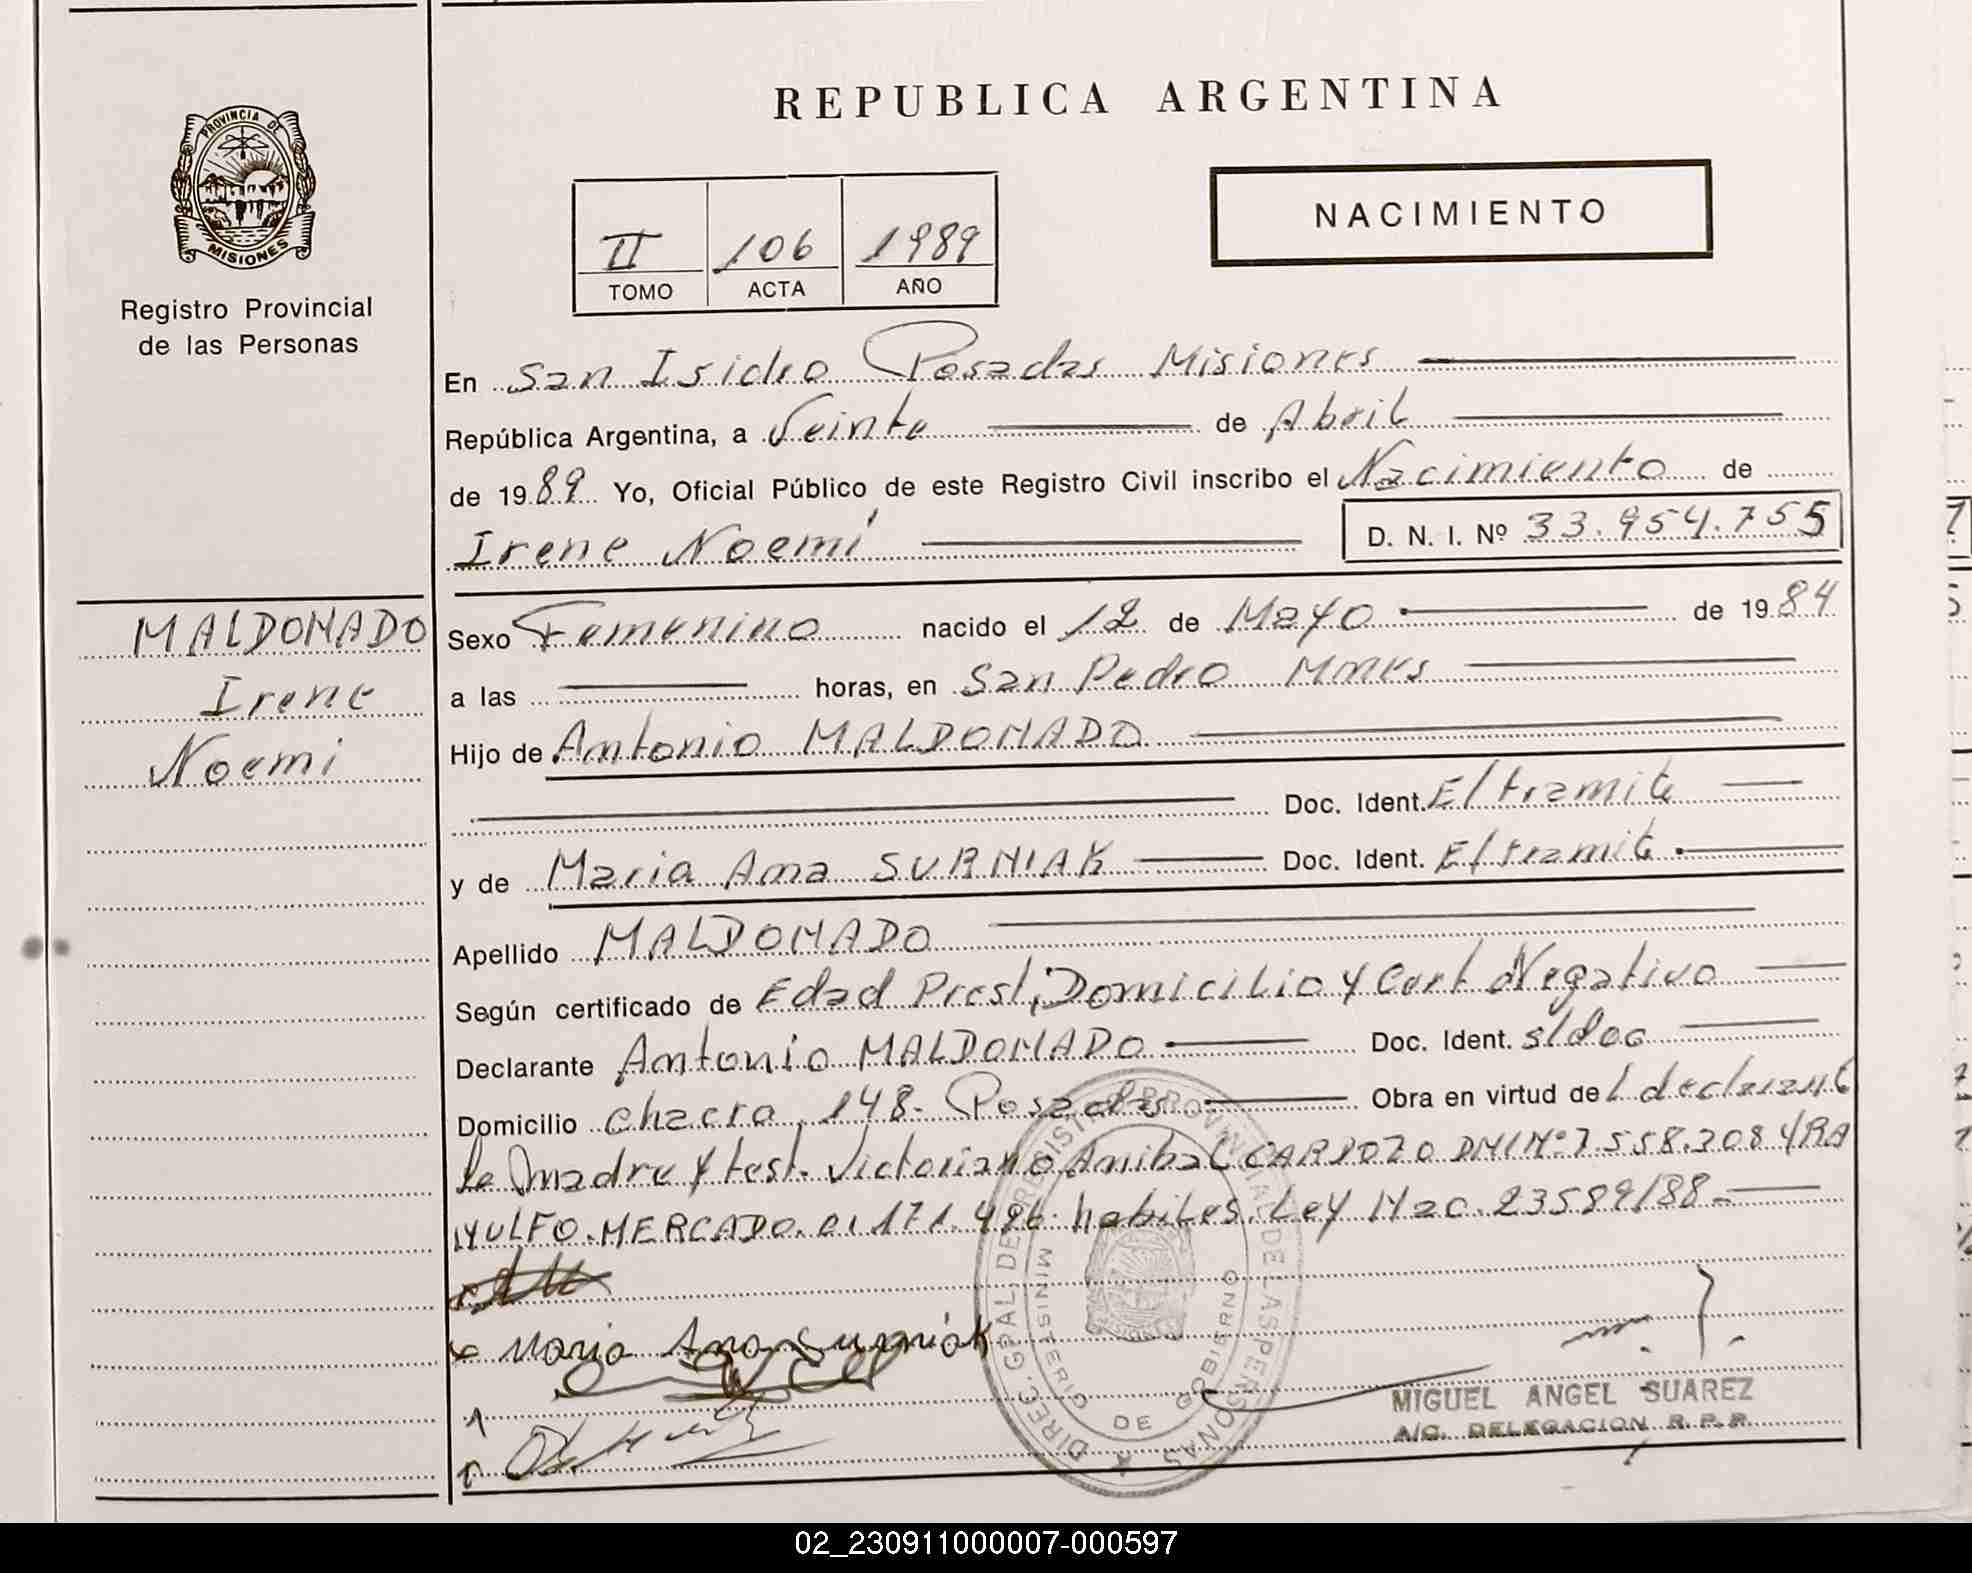 PROVINCIA DE
MISIONES
Registro Provincial
de las Personas
MALDONADO
Irene
Noemi
REPUBLICA ARGENTINA
II 106 1989
TOMO ACTA AÑO
NACIMIENTO
En San Isidro Posadas Misiones
República Argentina, a Veinte de Abril
de 1989 Yo, Oficial Público de este Registro Civil inscribo el Nacimiento de
Irene Noemí D. N. I. Nº 33.954.755
Sexo Femenino nacido el 12 de Mayo de 1984
a las horas, en San Pedro Mnes
Hijo de Antonio MALDONADO
Doc. Ident. E/tramite
y de Maria Ana SURNIAK Doc. Ident. E/tramite
Apellido MALDONADO
Según certificado de Edad Prest, Domicilio y Cert Negativo
Declarante Antonio MALDONADO Doc. Ident. s/doc
Domicilio chacra 148. Posadas Obra en virtud de l declarante
la madre y test. Victoriano Anibal CARDOZO DNI Nº 7.558.308 y RA
MULFO. MERCADO. CI 171.496. habiles. Ley Nac. 23589/88.-
Maria Ana Surniak
DIREC. GRAL. DE REGISTRO PROVINCIAL DE LAS PERSONAS
MINISTERIO DE GOBIERNO
MIGUEL ANGEL SUAREZ
A/C. DELEGACION R. P. P.
02_230911000007-000597